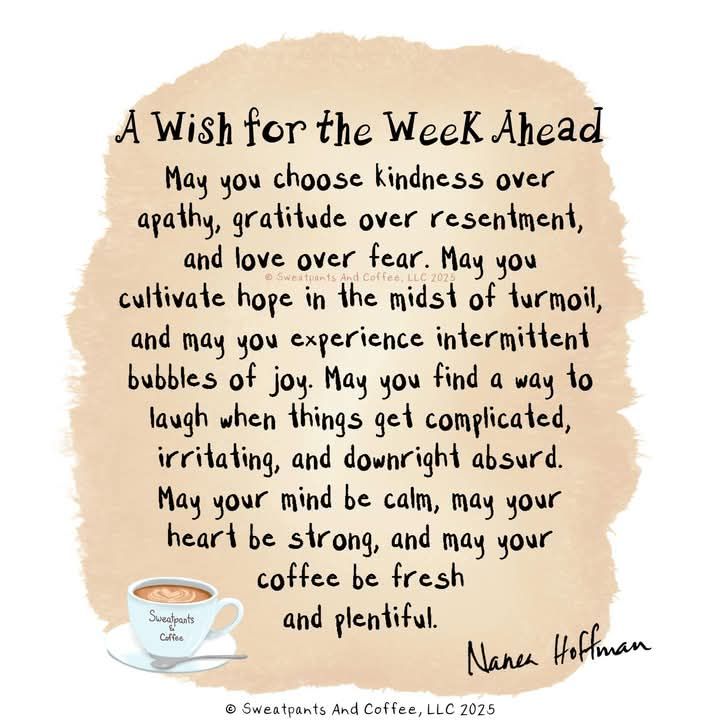 A Wish for the Week Ahead
May you choose kindness over
apathy, gratitude over resentment,
and love over fear. May you
© Sweatpants And Coffee, LLC 2025
cultivate hope in the midst of turmoil,
and may you experience intermittent
bubbles of joy. May you find a way to
laugh when things get complicated,
irritating, and downright absurd.
May your mind be calm, may your
heart be strong, and may your
coffee be fresh
and plentiful.
Sweatpants
&
Coffee
Nanea Hoffman
© Sweatpants And Coffee, LLC 2025